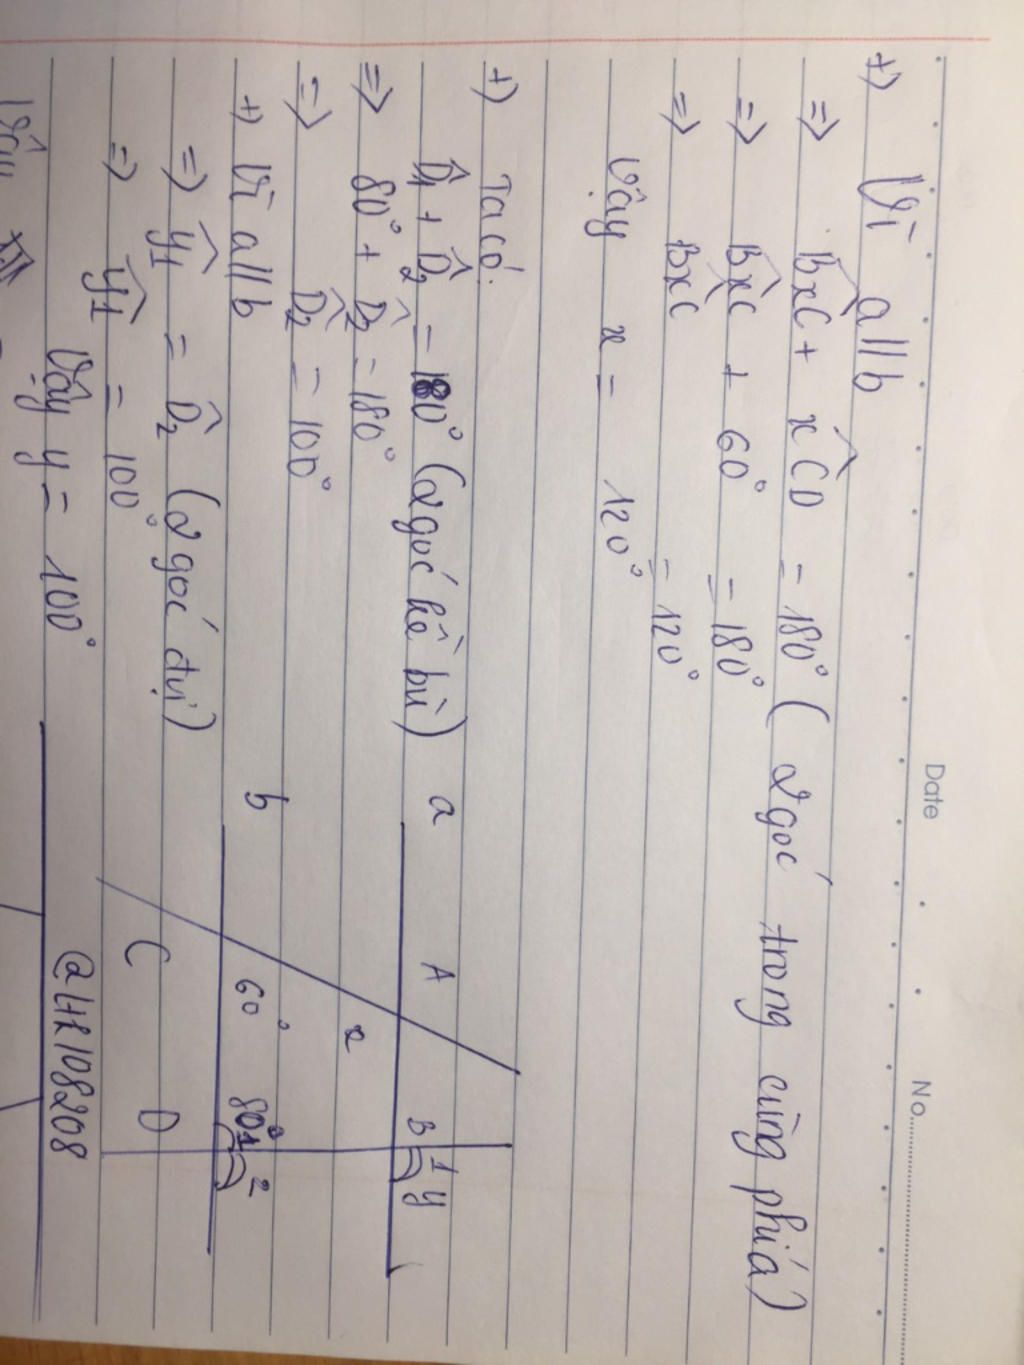 Date
No.
+) Vì a//b
=> BxC + xCD = 180° (2 góc trong cùng phía)
=> BxC + 60° = 180°
=> BxC = 120°
Vậy x = 120°
+) Ta có:
D1 + D2 = 180° (2 góc kề bù)
=> 80° + D2 = 180°
=> D2 = 100°
+) Vì a//b
=> y1 = D2 (2 góc đvị)
=> y1 = 100°
Vậy y = 100°
a A B 1 y
x
b 60° 80° 1 2
C D
@LH108208
Vậy